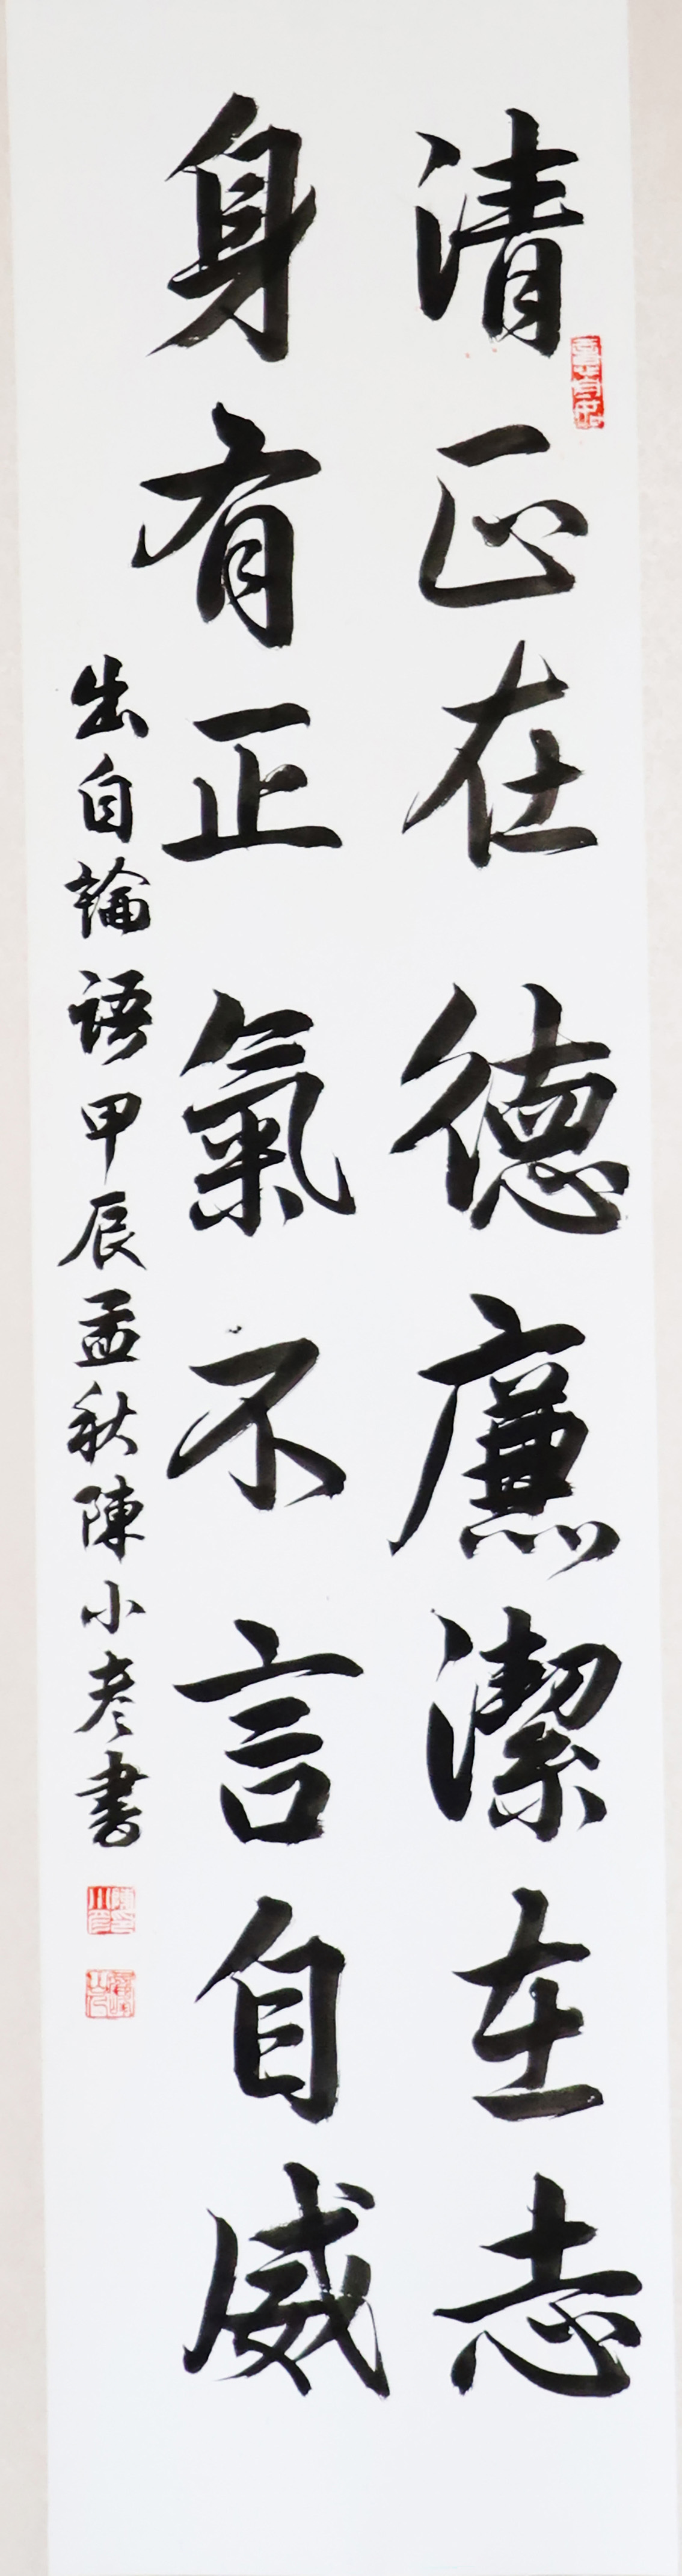 清正在德廉潔在志
身有正氣不言自威
出自論語甲辰孟秋陳小彥書